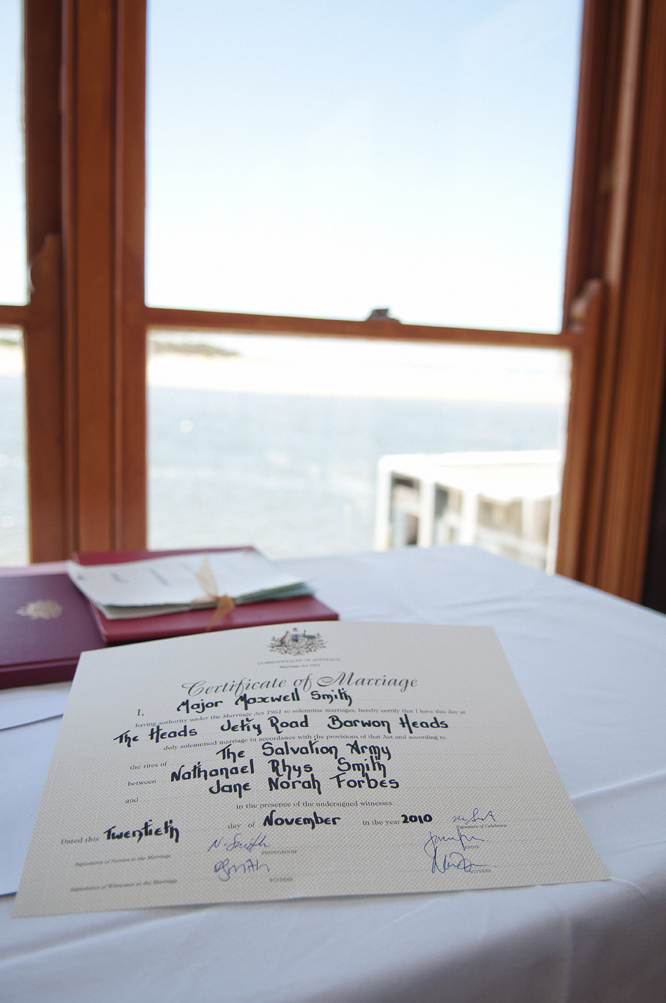 COMMONWEALTH OF AUSTRALIA
Marriage Act 1961
Certificate of Marriage
I, Major Maxwell Smith
having authority under the Marriage Act 1961 to solemnise marriages, hereby certify that I have this day at
The Heads Jetty Road Barwon Heads
duly solemnised marriage in accordance with the provisions of that Act and according to
the rites of The Salvation Army
between Nathanael Rhys Smith
and Jane Norah Forbes
in the presence of the undersigned witnesses.
Dated this Twentieth day of November in the year 2010
Signature of Celebrant
Signatures of Parties to the Marriage N. Smith
BRIDEGROOM BRIDE
Signatures of Witnesses to the Marriage
WITNESS WITNESS